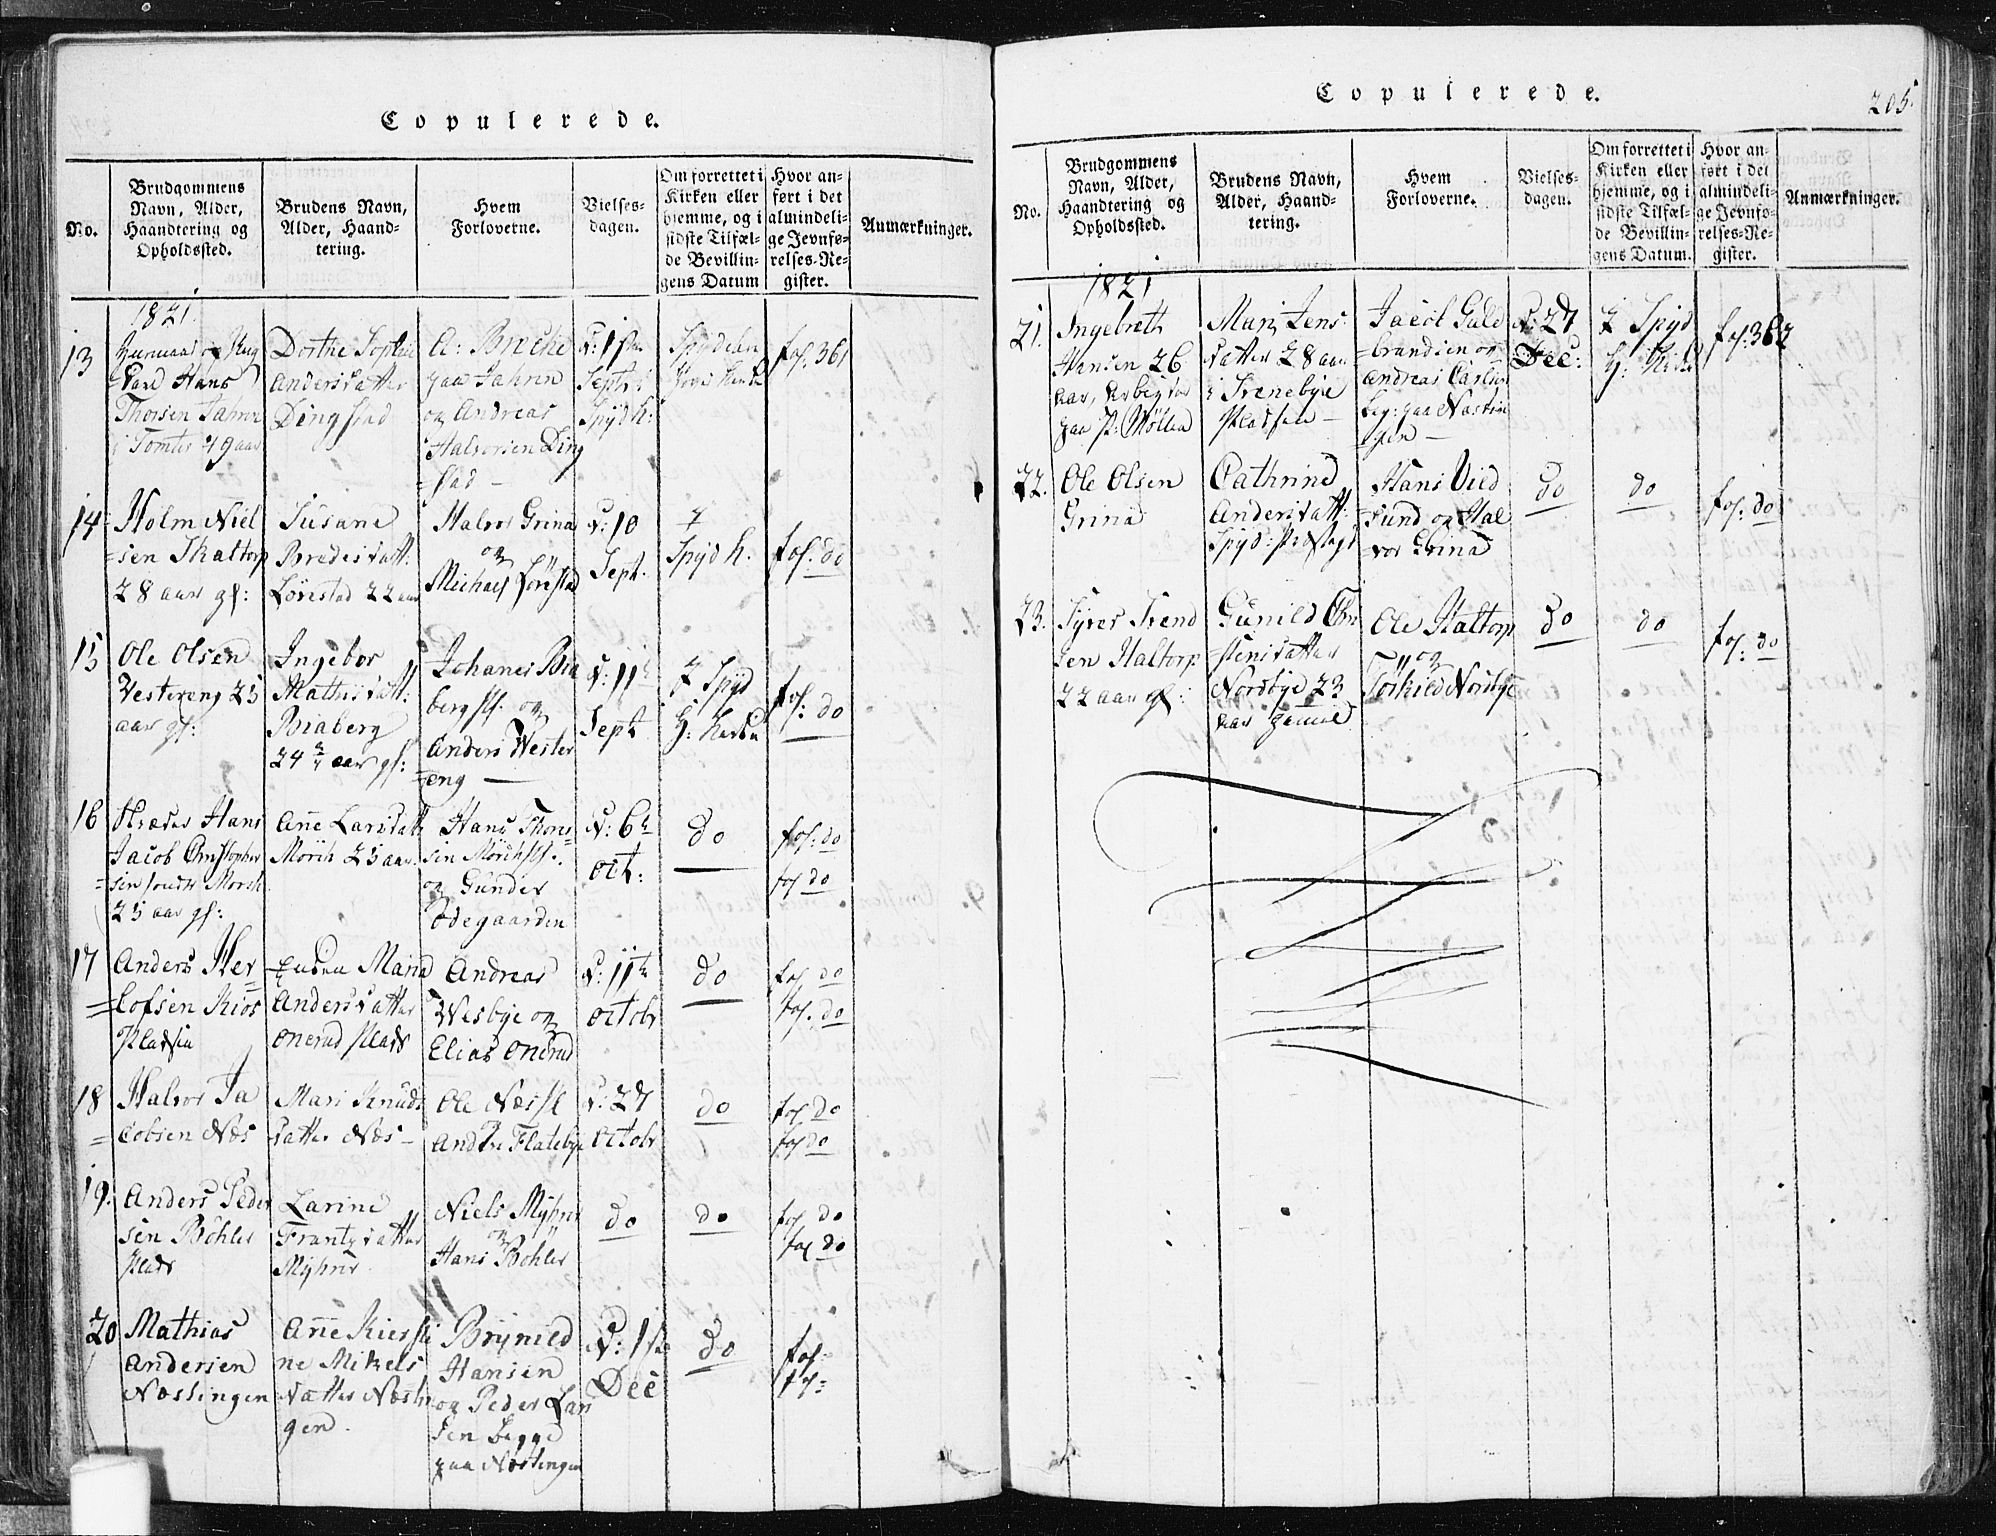 Copulerede.
No.
Brudgommens
Navn, Alder,
Haandtering og
Opholdssted.
Brudens Navn,
Alder, Haand-
tering.
Hvem
Forloverne.
Vielses-
dagen.
Om forrettet i
Kirken eller
hjemme, og i
sidste Tilfæl-
de Bevillin-
gens Datum
Hvor an-
ført i det
almindeli-
ge Jevnfø-
relses-Re-
gister.
Anmærkninger.
1821.
13
Hans
Thorsen
i Tomter 49 aar
Dorthe Sophie
Andersdatter
Dingstad
A: Brecke
paa
og Andreas
Halvorsen Ding
=stad —
Sept:
Spyd k:
fol: 361
14
Holm Niel
=sen Skaltorp
28 aar gl:
Susane
Bredesdatt:
Lörestad 22 aar
Halvor Grina
og
Michael Lörestad
d: 10
Sept:
Spyd k.
fol: do
15
Ole Olsen
Westereng 25
aar gl:
Ingebor
Mathisdatt:
Braberg
24 aar gl:
Johanes Bra
berg og
Anders Wester
=eng —
d: 11te
Sept
I Spyd
H: Kirke
fol: do
16
Hans
Jacob Christopher
=sen Morch
25 aar gl:
Ane Larsdatt
Mörch 25 aar.
Hans Thors
sen Mörch
og Gunder
Ödegaarden
d: 6te
Oct:
do
fol: do
fol do
17
Anders Her
=lofsen Kios
Pladsen
Maria
Andersdatter
Onerud Plads
Andreas
Wesbye og
Elias Onerud
d: 11te
Octobr
do
fol do
fol. do
18
Halvor Ja
=cobsen Næs
Mari Knuds
datter Næs —
Ole Næs
Andre Flatebye
d: 27
Octobr
do
fol do
fol do
19.
Anders Peder
sen Böhler
Plads
Larine
Frantzdatter
Myhrer
Niels Myhrer
og
Hans Bohler
do
do
fol do
fol do
20
Mathias
Andersen
Næstingen
Ane Kiersti
ne Mikels
Datter Næstin
gen.
Brynild
Hansen
og Peder Lar
sen begge
paa Næstingen
Dec
do
fol:
fol:
Copulerede.
205.
No.
Brudgommens
Navn, Alder,
Haandtering og
Opholdssted.
Brudens Navn,
Alder, Haand-
tering.
Hvem
Forloverne.
Vielses-
dagen.
Om forrettet i
Kirken eller
hjemme, og i
sidste Tilfæl-
de Bevillin-
gens Datum.
Hvor an-
ført i det
almindeli-
ge Jevnfø-
relses-Re-
gister.
Anmærkninger.
1821
21.
Ingebreth
Hansen 26
aar, Arbeider
paa
Mari Jens
datter 28 aar
i Trenebye
Pladsen —
Jacob Guld
=brandsen og
Andreas Carlsen
beg: paa Næstin
gen —
d: 27
Dec:
I Spyd
H: Kirke
fol: 362
22.
Ole Olsen
Grina
Cathrine
Andersdatt:
Spyd: Præstegd
Hans Vild
=sund og Hal
vor Grina
do
do
fol: do
23.
Syver Svend
sen Haltorp
22 aar gl:
Gunild Chri
=stensdatter
Nordbye 23
aar gamel
Ole Haltorp
og
Torkild Nordbye
do
do
fol: do